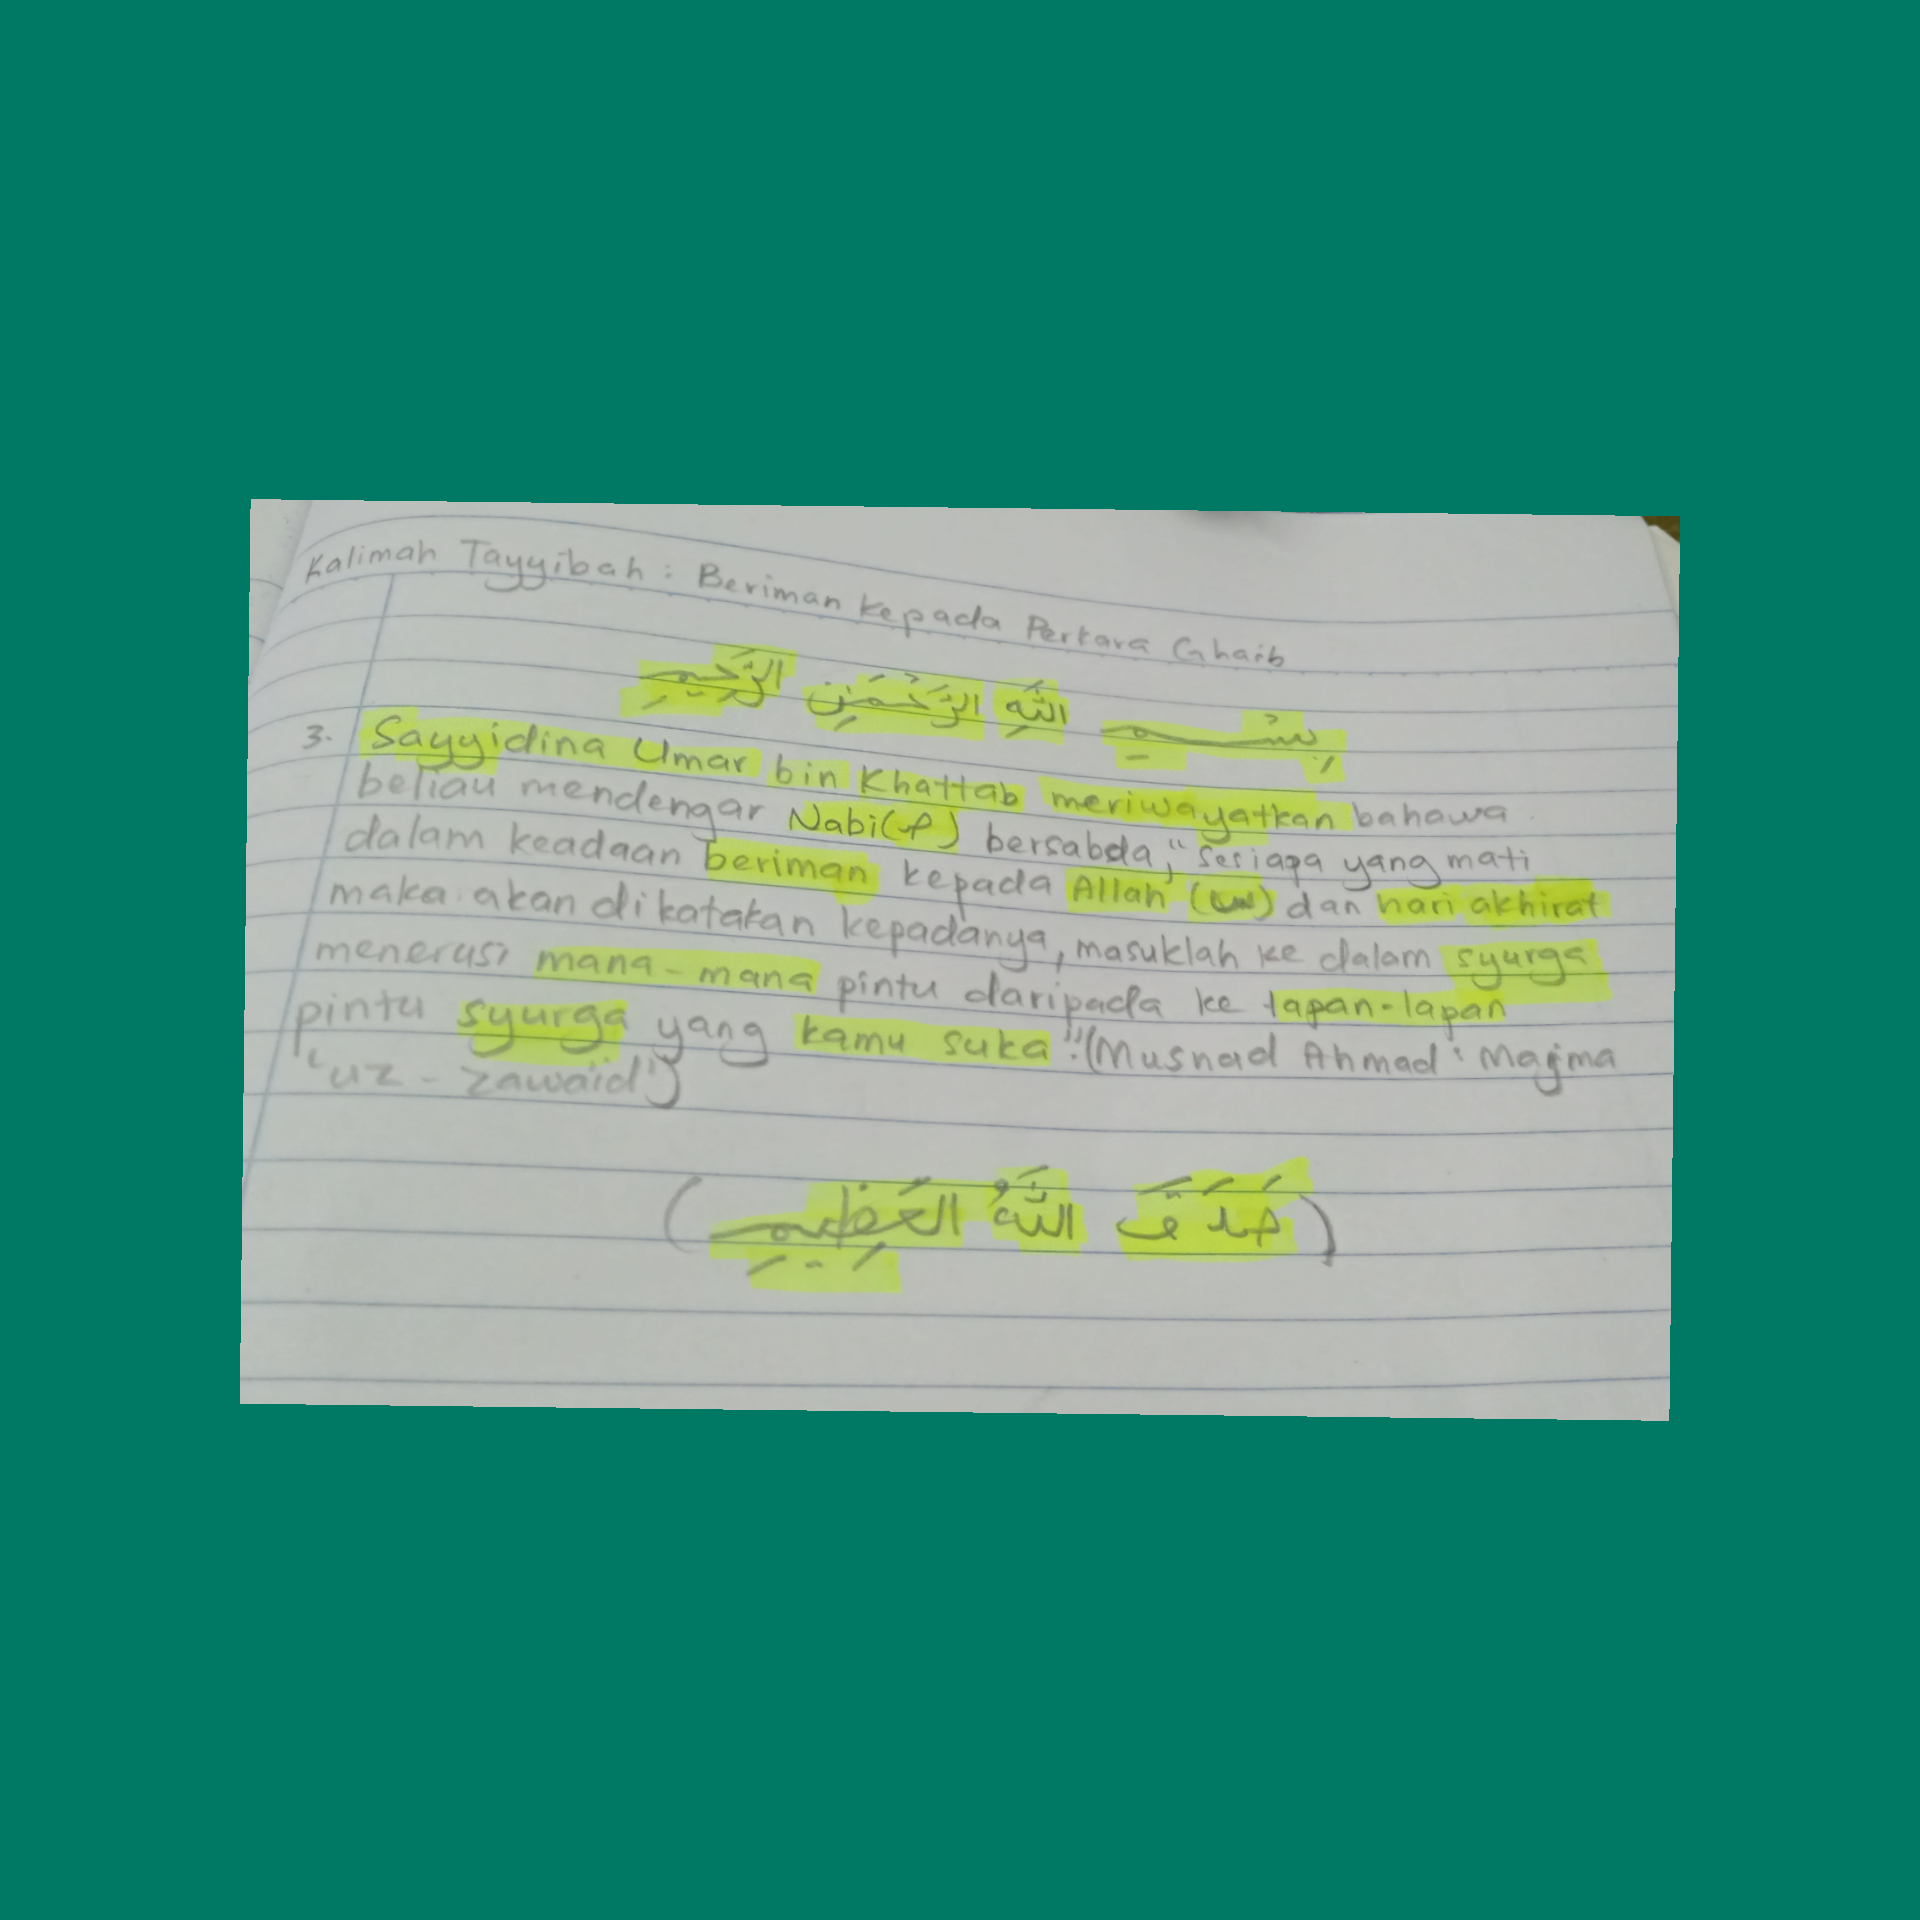 Kalimah Tayyibah : Beriman kepada Perkara Ghaib
بِسْــــمِ اللَّهِ الرَّحْمَنِ الرَّحِيمِ
3. Sayyidina Umar bin Khattab meriwayatkan bahawa
beliau mendengar Nabi(ص) bersabda, "Sesiapa yang mati
dalam keadaan beriman kepada Allah () dan hari akhirat
maka akan dikatakan kepadanya, masuklah ke dalam syurga
menerusi mana-mana pintu daripada ke lapan-lapan
pintu syurga yang kamu suka". (Musnad Ahmad : Majma
'uz - zawaid')
(صَدَقَ اللَّهُ العَظِيمِ)